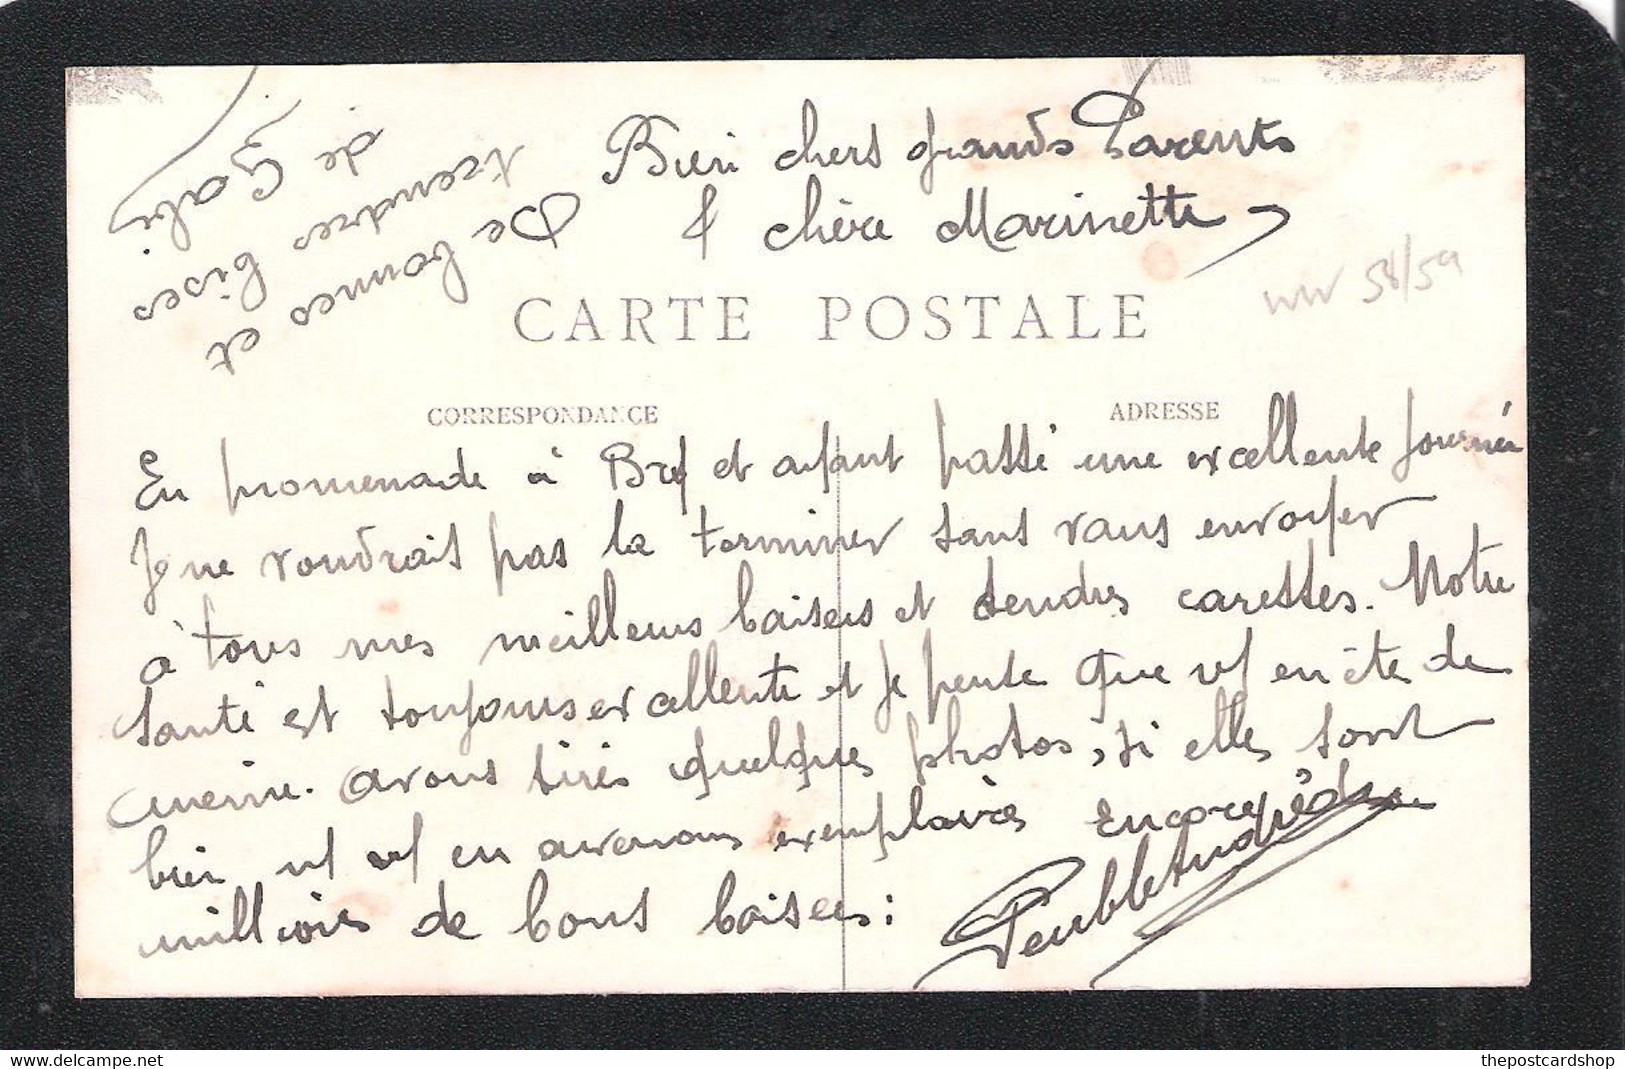 Bien chers grands Parents
& chère Marinette
De bonnes et
tendres bises
de Gaby
WW 58/59
CARTE POSTALE
CORRESPONDANCE
ADRESSE
En promenade à et ayant passé une excellente journée
Je ne voudrais pas la terminer sans vous envoyer
à tous mes meilleurs baisers et tendres caresses. Notre
santé est toujours excellente et je pense que vs en ête de
même. avons tirés quelques photos, si elles sont
bien vs en avenous exemplaires Encore
millions de bons baisers:
thepostcardshop